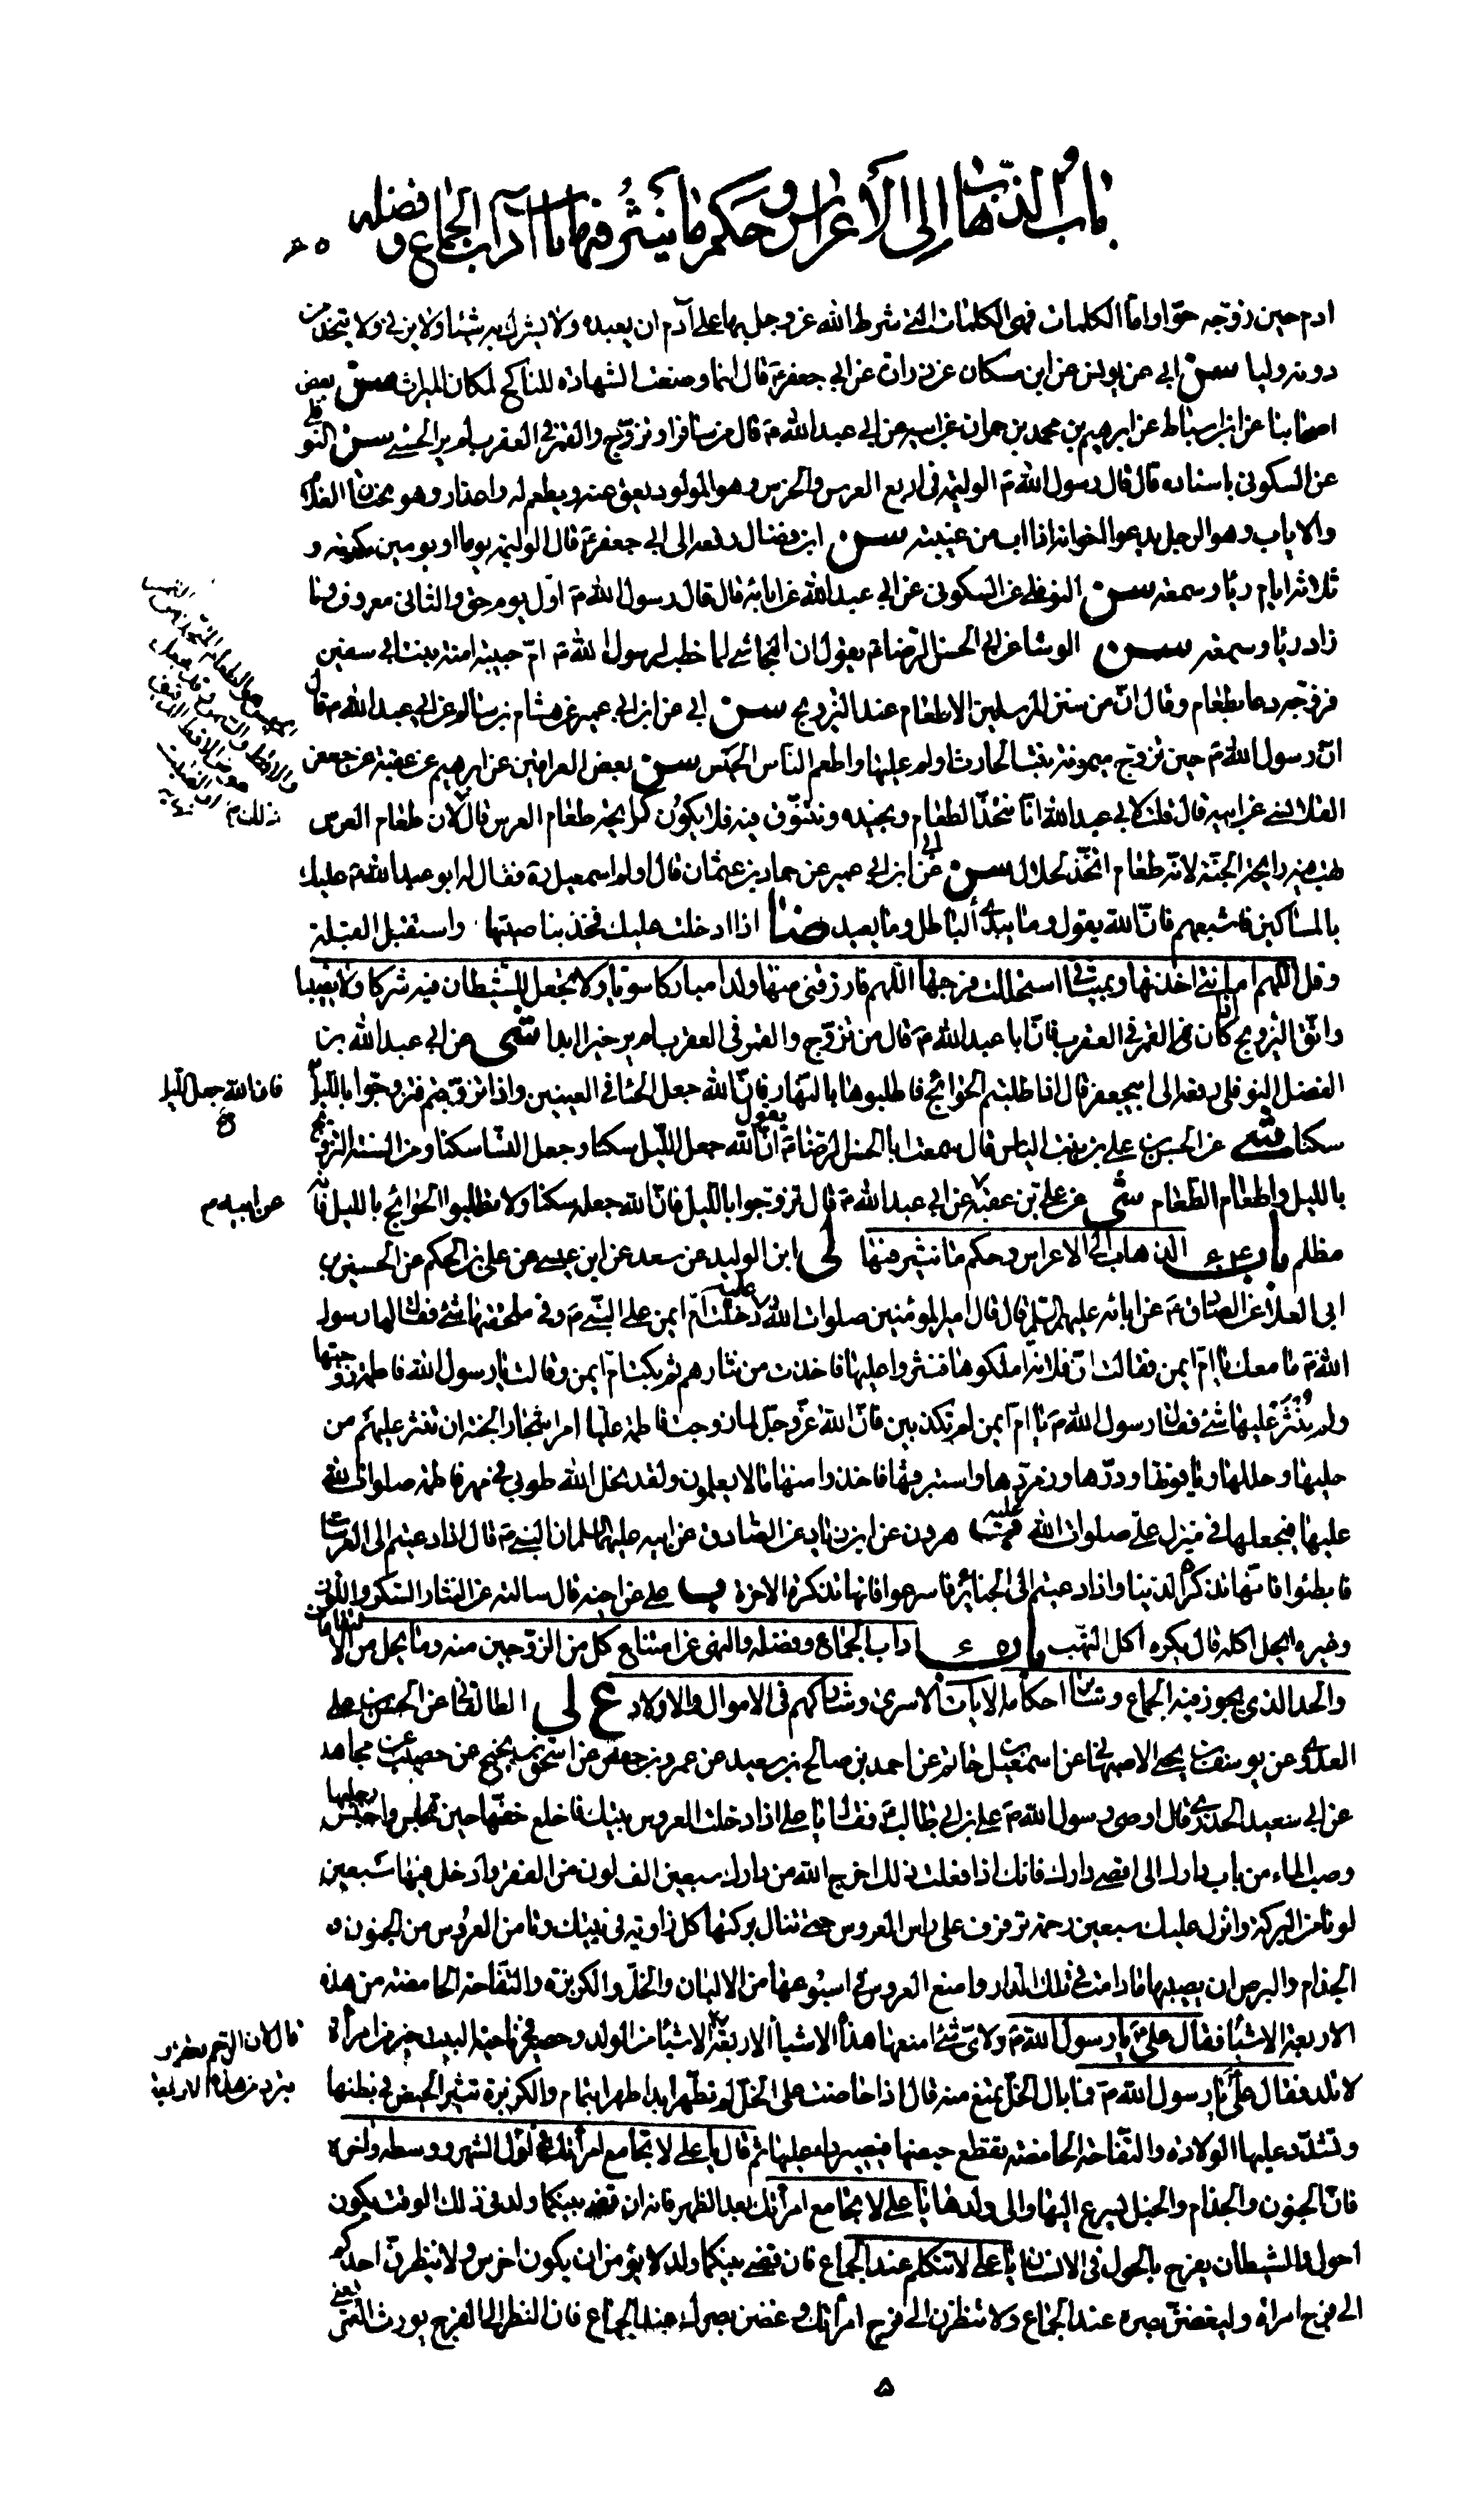 باب الذهاب إلى الأعراس وحكم ما ينثر فيها باب آداب الجماع وفضله
ادم حين زوجه حوا واما الكلمات فهى الكلمات التى شرط الله عز وجل بها على آدم ان يعبده ولا يشرك به شيئا ولا يزنى ولا يتخذ من
دونه وليا سن ابى عن يونس عن ابن مسكان عن زرارة عن ابى جعفر ع قال انما وضعت الشهادة للناكح لمكان الميراث سن بعض
اصحابنا عن ابن اسباط عن ابرهيم بن محمد بن حمران عن ابيه عن ابى عبد الله ع قال من سافر او تزوج والقمر فى العقرب لم ير الحسنى سن النوفلى
عن السكونى باسناده قال قال رسول الله ص الوليمة فى اربع العرس والخرس وهو المولود يعق عنه ويطعم له واعذار وهو ختان الغلام
والاياب وهو الرجل يدعو اخوانه اذا اب من غيبته سن ابن فضال رفعه الى ابى جعفر ع قال الوليمة يوما او يومين مكرمة و
ثلاثة ايام رياء وسمعة سن النوفلى عن السكونى عن ابى عبد الله عن ابائه قال قال رسول الله ص اول يوم حق والثانى معروف وما
زاد رياء وسمعة سن الوشا عن ابى الحسن الرضا ع يقول ان النجاشى لما خطب لرسول الله ص ام حبيبة امنة بنت ابى سفين
فزوجه دعا بطعام وقال ان من سنن المرسلين الاطعام عند التزويج سن ابى عن ابن ابى عمير عن هشام بن سالم عن ابى عبد الله ع قال
ان رسول الله ص حين تزوج ميمونة بنت الحارث اولم عليها واطعم الناس الحيس سن بعض العراقيين عن ابرهيم عن عقبة عن جعفر
القلانسى عن ابيه قال قلت لابى عبد الله انا نتخذ الطعام ونجيده ونتنوق فيه فلا يكون له رائحة طعام العرس قال لان طعام العرس
تهب فيه رائحة الجنة لانه طعام اتخذ لحلال سن ابى عن ابن ابى عمير عن حماد بن عثمان قال اولم اسمعيل ره فقال له ابو عبد الله ع عليك
بالمساكين فاشبعهم فان الله يقول وما يبدئ الباطل وما يعيد ضا اذا ادخلت عليك فخذ بناصيتها واستقبل القبلة
وقل اللهم امانتى اخذتها وبميثاقى استحللت فرجها اللهم فارزقنى منها ولدا مباركا سويا ولا تجعل للشيطان فيه شركا ولا نصيبا
واتق التزويج اذا كان القمر فى العقرب فان ابا عبد الله ع قال من تزوج والقمر فى العقرب لم ير خيرا ابدا شى عن ابى عبد الله بن
الفضل النوفلى رفعه الى ابى جعفر قال اذا طلبتم الحوائج فاطلبوها بالنهار فان الله جعل الحيا فى العينين واذا تزوجتم فتزوجوا بالليل
فان الله جعل الليل
سكنا شى عن الحسن بن على بن بنت الياس قال سمعت ابا الحسن الرضا ع يقول ان الله جعل الليل سكنا وجعل النسا سكنا ومن السنة التزويج
بالليل واطعام الطعام شى عن على بن عقبة عن ابى عبد الله ع قال تزوجوا بالليل فان الله جعله سكنا ولا تطلبوا الحوائج بالليل فانه
عن ابيه م
مظلم باب الذهاب الى الاعراس وحكم ما ينثر فيها لى ابن الوليد عن سعد عن ابن عيسى عن على بن الحكم عن الحسين بن
ابى العلا عن الصادق ع عن ابائه عليهم السلم قال قال امير المؤمنين صلوات الله عليه دخلت ام ايمن على النبى ص وفى ملحفتها شئ فقال لها رسول
الله ص ما معك يا ام ايمن فقالت ان فلانة املكوها فنثروا عليها فاخذت من نثارهم ثم بكت ام ايمن وقالت يا رسول الله فاطمة زوجتها
ولم ينثر عليها شئ فقال رسول الله ص يا ام ايمن لم تكذبين فان الله عز وجل لما زوجت فاطمة عليا امر اشجار الجنة ان تنثر عليهم من
حليها وحللها وياقوتها ودرها وزمردها واستبرقها فاخذوا منها ما لا يعلمون ولقد نحل الله طوبى فى مهر فاطمة صلوات الله
عليها فجعلها فى منزل على صلوات الله عليه ب هرون عن ابن زياد عن الصادق عن ابيه عليهما السلم ان النبى ص قال اذا دعيتم الى العرسات
فابطئوا فانها تذكر الدنيا واذا دعيتم الى الجنائز فاسرعوا فانها تذكر الاخرة ب على عن اخيه قال سالته عن النثار السكر واللوز
وغيره ايحل اكله قال يكره اكل النهب باب اداب الجماع وفضله والنهى عن امتناع كل من الزوجين منه وما يحل من الانتفاعات
والحد الذى يجوز فيه الجماع وساير احكامه الايات الاسرى وشاركهم فى الاموال والاولاد ع لى الطالقانى عن الحسن بن على
العدوى عن يوسف بن يحيى الاصبهانى عن اسمعيل بن حاتم عن احمد بن صالح بن سعيد عن عمرو بن جعفر عن اسحق بن نجيح عن حصيب عن مجاهد
عن ابى سعيد الخدرى قال اوصى رسول الله ص على بن ابى طالب ع فقال يا على اذا دخلت العروس بيتك فاخلع خفها حين تجلس واغسل رجليها
وصب الماء من باب دارك الى اقصى دارك فانك اذا فعلت ذلك اخرج الله من دارك سبعين الف لون من الفقر وادخل فيها سبعين
لونا من البركة وانزل عليك سبعين رحمة ترفرف على راس العروس حتى تنال بركتها كل زاوية فى بيتك وتامن العروس من الجنون و
الجذام والبرص ان يصيبها ما دامت فى تلك الدار وامنع العروس فى اسبوعها من الالبان والخل والكزبرة والتفاحة الحامضة من هذه
الاربعة الاشيا فقال على ع يا رسول الله ص ولاى شئ امنعها هذه الاشياء الاربعة قال لان الرحم تعقم وتبرد من هذه الاربعة الاشيا من الولد وحصير فى ناحية البيت خير من امراة
لا تلد فقال على يا رسول الله ص فما بال الخل تمنع منه قال اذا حاضت على الخل لم تطهر ابدا طهرا بتمام والكزبرة تثير الحيض فى بطنها
وتشدد عليها الولادة والتفاحة الحامضة تقطع حيضها فيصير داء عليها ثم قال يا على لا تجامع امراتك فى اول الشهر ووسطه واخره
فان الجنون والجذام والخبل يسرع اليها والى ولدها يا على لا تجامع امراتك بعد الظهر فانه ان قضى بينكما ولد فى ذلك الوقت يكون
احول والشيطان يفرح بالحول فى الانسان يا على لا تتكلم عند الجماع فان قضى بينكما ولد لا يؤمن ان يكون اخرس ولا ينظرن احدكم
الى فرج امراته وليغض بصره عند الجماع ولا تنظرن الى فرج امراتك وغض بصرك عند الجماع فان النظر الى الفرج يورث العمى يعنى